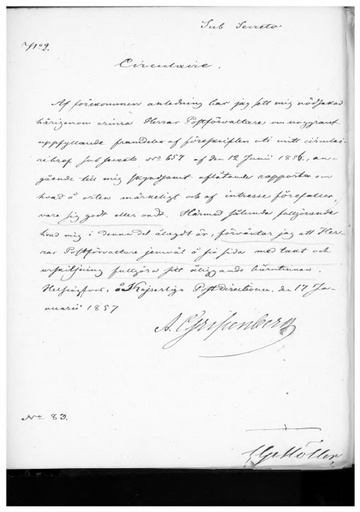 Sub Secreto
Circulaire.
Af förekommen anledning har jag sett mig nödsakad
härigenom erinra Herrar Postförvaltare om noggrant
uppfyllande framdeles af föreskriften uti mitt circulai-
rebref sub secreto No 657 af den 12 Junii 1856, an-
gående till mig skyndsamt aflåtande rapporter om
hvad å orten märkeligt och af intresse förefaller,
vare sig godt eller ondt. Härmed sålunda fullgörande
hvad mig i denna del ålagdt är, förväntar jag att Her-
rar Postförvaltare jemväl å sin sida med takt och
urskiljning fullgöra sitt åliggande härutinnan.
Helsingfors, å Kejserliga PostDirectionen, den 17 Ja-
nuarii 1857
A. Gripenberg
No 83.